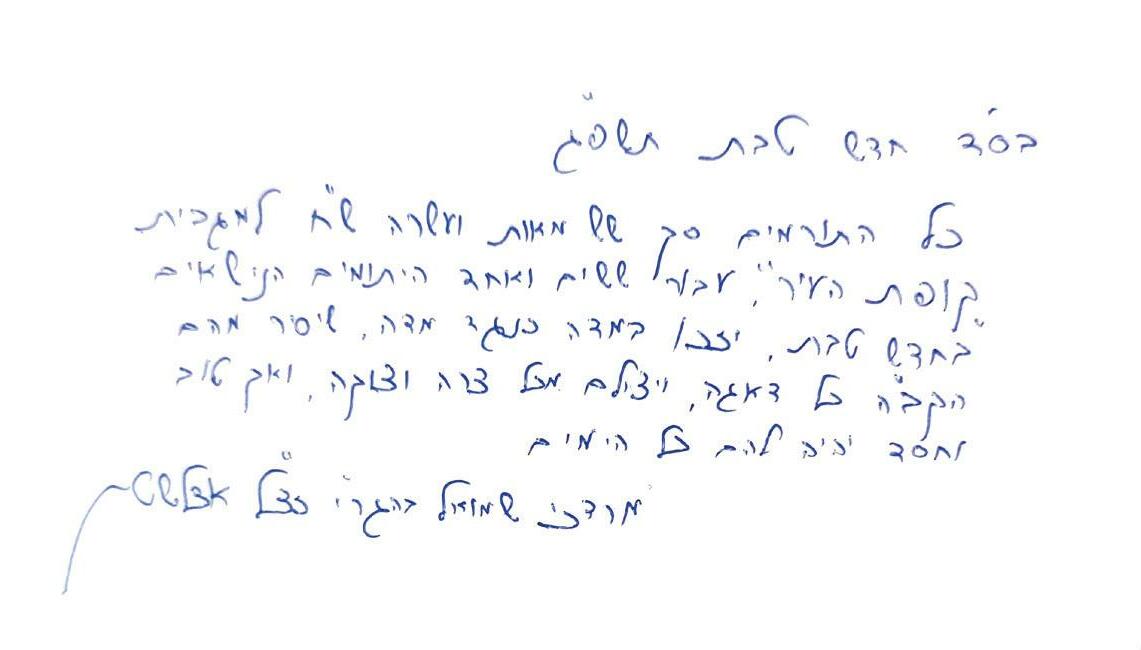 בס"ד חדש טבת תשפ"ג
כל התורמים סך שש מאות ועשרה ש"ח למגבית
"קופת העיר", עבור ששים ואחד היתומים הנישאים
בחדש טבת, יזכו במדה כנגד מדה, שיסיר מהם
הקב"ה כל דאגה, ויצילם מכל צרה וצוקה, ואך טוב
וחסד יהיה להם כל הימים
מרדכי שמואל בהגר"י זצ"ל